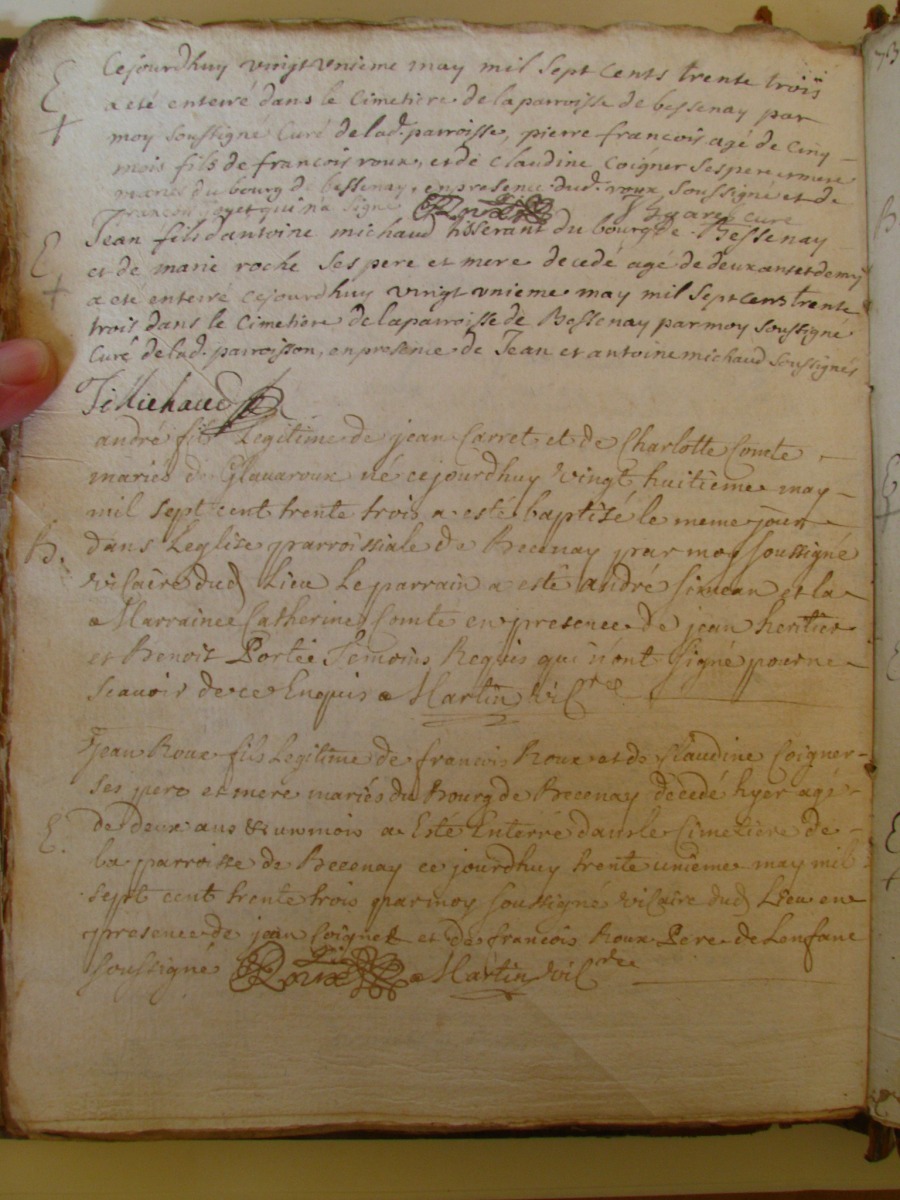 Cejourdhuy vingt vnieme may mil sept cents trente troiis
E a eté enterré dans le Cimetiere de la parroisse de bessenay par
+ moy soussigné Curé de lad. parroisse, pierre francois agé de cinq
mois fils de francois roux, et de Claudine Coigner ses pere et mere
mariés du bourg de bessenay, en presence dud. roux soussigné et de
francois qui n'a signé Roux curé
Jean fils d'antoine michaud tisserant du bourg de Bessenay
E et de marie roche ses pere et mere decedé agé de deux ans et demy
+ a eté enterré cejourdhuy vingt vnieme may mil sept cens trente
trois dans le Cimetiere de la parroisse de Bessenay par moy soussigné
Curé de lad. parroisson, en presence de Jean et antoine michaud soussignés
Michaud
andré fils Legitime de jean Carret et de Charlotte Comte
mariés de Glauaroux né cejourdhuy vingt huitieme may
mil sept cent trente trois a esté baptisé le meme jour
B. dans Leglise parroissiale de Becenay par moy soussigné
viCaire dud Lieu Le parrain a esté andré simean et la
Marrainee Catherine Comte en presence de jean heritier
et Benoit Portée Temoins Requis qui n'ont signé pour ne
scauoir de ce Enquis Martin viCre
Jean Roux fils Legitime de francois Roux et de Claudine Coigner
ses pere et mere mariés du Bourg de Becenay décedé hyer agé
E. de deux ans & un mois a Esté Enterré dans le Cimetiere de
La parroisse de Becenay ce jourdhuy trente unieme may mil
sept cent trente trois par moy soussigné viCaire dud Lieu en
presence de jean Coignet et de francois Roux Pere de Lenfant
soussigné Roux Martin viCre